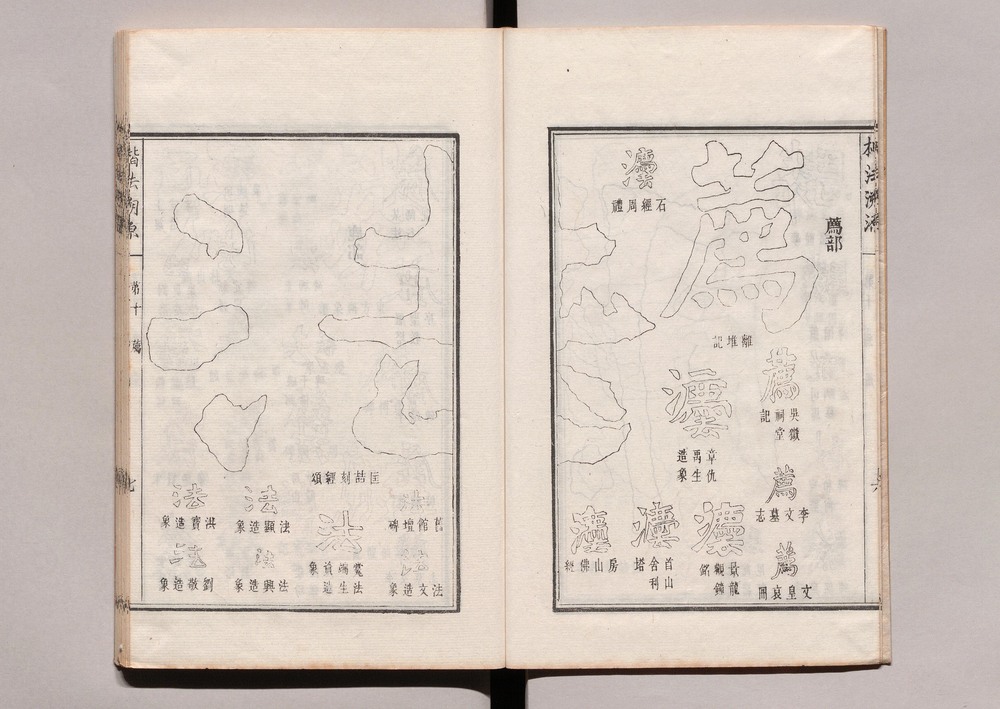 楷法溯源
薦部
薦
離堆記
薦
吳嶽祠堂記
薦
李文墓志
薦
文皇哀冊
灋
石經周禮
灋
章仇禹生造象
灋
景龍觀鐘銘
灋
首山舍利塔
灋
房山佛經
法
匡喆刻經頌
舊館壇碑
法
法文造象
法
法生造象
法
法顯造象
法
法興造象
法
洪寶造象
法
劉敬造象
楷法溯源
第十
七